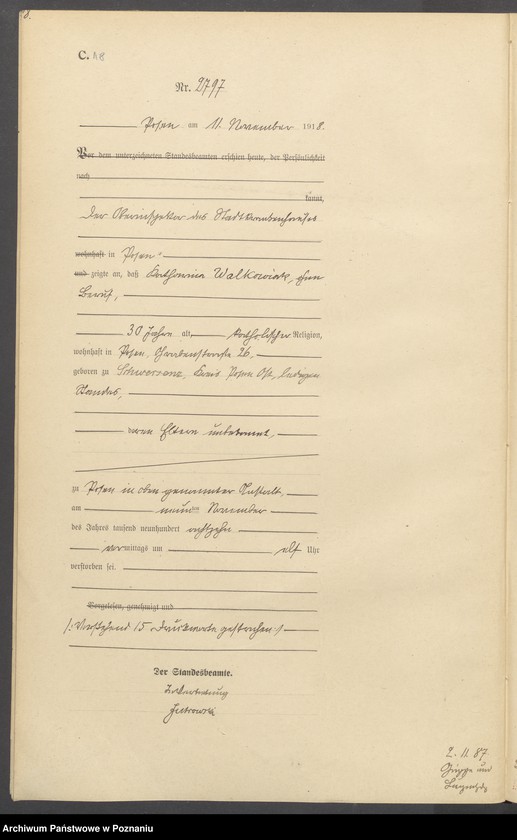 C. 18
Nr. 2797
Posen am 11. November 1918.
Vor dem unterzeichneten Standesbeamten erschien heute, der Persönlichkeit
nach
kannt,
Der Oberinspektor des Stadtkrankenhauses
wohnhaft in Posen
und zeigte an, daß Katharina Walkowiak, ohne
Beruf,
30 Jahre alt, katholischer Religion,
wohnhaft in Posen, Grabenstraße 26,
geboren zu Schwersenz, Kreis Posen Ost, ledigen
Standes,
deren Eltern unbekannt,
zu Posen in oben genannter Anstalt,
am neunten November
des Jahres tausend neunhundert achtzehn
vormittags um elf Uhr
verstorben sei.
Vorgelesen, genehmigt und
/: Vorstehend 15 Druckworte gestrichen :/
Der Standesbeamte.
In Vertretung
2. 11. 87
Grippe und
Archiwum Państwowe w Poznaniu